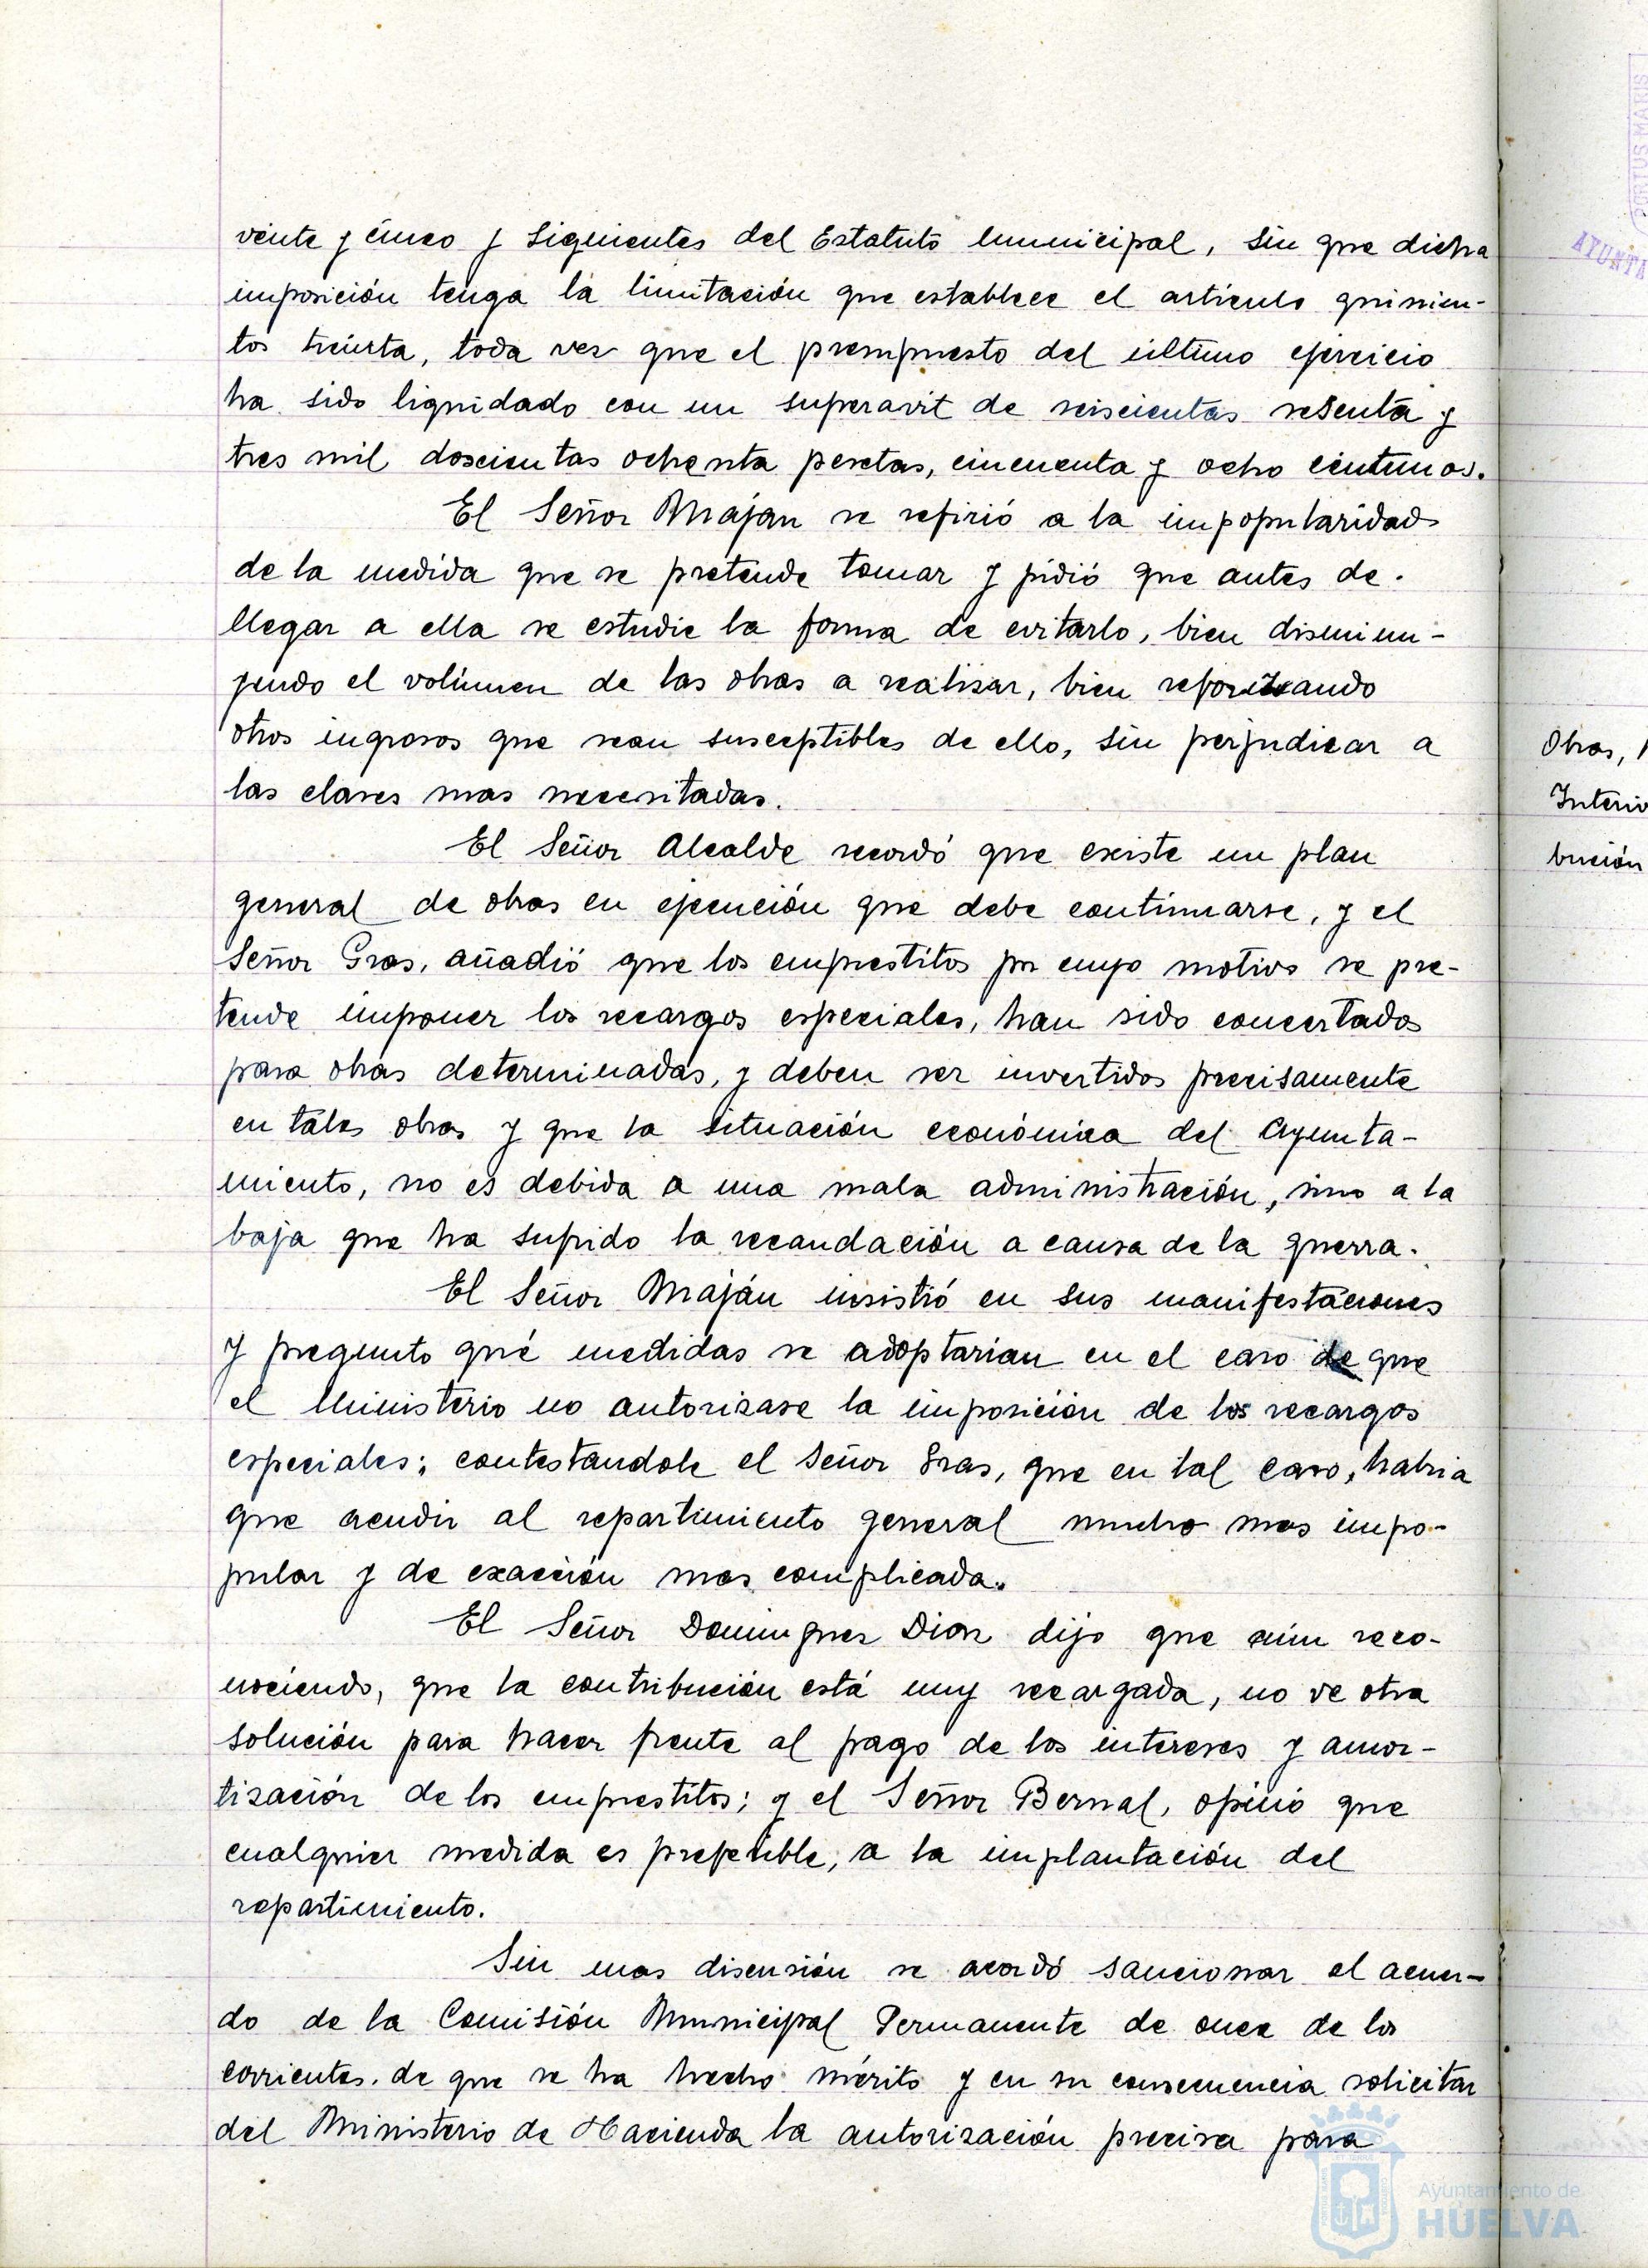 veinte y cinco y siguientes del Estatuto municipal, sin que dicha
imposición tenga la limitación que establece el articulo quinien-
tos treinta, toda vez que el presupuesto del último ejercicio
ha sido liquidado con un superavit de seiscientas sesenta y
tres mil doscientas ochenta pesetas, cincuenta y ocho céntimos.
El Señor Maján se refirió a la impopularidad
de la medida que se pretende tomar y pidió que antes de
llegar a ella se estudie la forma de evitarlo, bien disminu-
yendo el volúmen de las obras a realizar, bien reforzando
otros ingresos que sean susceptibles de ello, sin perjudicar a
las clases mas necesitadas.
El Señor Alcalde recordó que existe un plan
general de obras en ejecución que debe continuarse, y el
Señor Gras, añadió que los emprestitos por cuyo motivo se pre-
tende imponer los recargos especiales, han sido concertados
para obras determinadas, y deben ser invertidos precisamente
en tales obras y que la situación económica del Ayunta-
miento, no es debida a una mala administración, sino a la
baja que ha sufrido la recaudación a causa de la guerra.
El Señor Maján insistió en sus manifestaciones
y pregunto qué medidas se adoptarian en el caso de que
el Ministerio no autorizase la imposición de los recargos
especiales; contestandole el Señor Gras, que en tal caso, habria
que acudir al repartimiento general mucho mas impo-
pular y de exacción mas complicada.
El Señor Dominguez Diaz dijo que aún reco-
nociendo, que la contribución está muy recargada, no ve otra
solución para hacer frente al pago de los intereses y amor-
tización de los emprestitos; y el Señor Bernal, opinó que
cualquier medida es preferible, a la implantación del
repartimiento.
Sin mas discusión se acordó sancionar el acuer-
do de la Comisión Municipal Permanente de once de los
corrientes, de que se ha hecho mérito y en su consecuencia solicitar
del Ministerio de Hacienda la autorización precisa para
Obras,
Interio
bución
PORTUS MARIS
AYUNTA
Ayuntamiento de
HUELVA